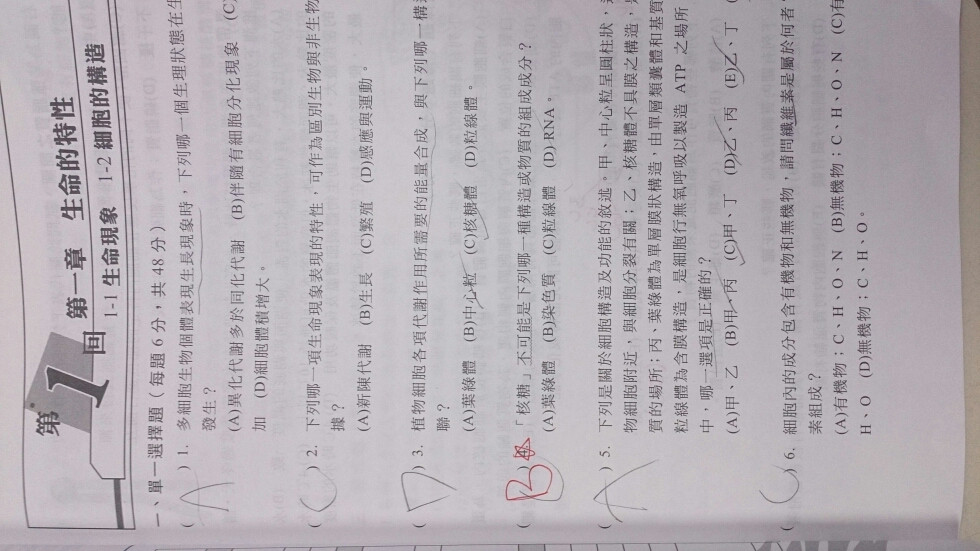 第1回
第一章 生命的特性
1-1 生命現象 1-2 細胞的構造
一、單一選擇題（每題6分，共48分）
( A ) 1. 多細胞生物個體表現生長現象時，下列哪一個生理狀態在生
發生？
(A)異化代謝多於同化代謝 (B)伴隨有細胞分化現象 (C)
加 (D)細胞體積增大。
( C ) 2. 下列哪一項生命現象表現的特性，可作為區別生物與非生物
據？
(A)新陳代謝 (B)生長 (C)繁殖 (D)感應與運動。
( D ) 3. 植物細胞各項代謝作用所需要的能量合成，與下列哪一構
聯？
(A)葉綠體 (B)中心粒 (C)核糖體 (D)粒線體。
( B ) 「核糖」不可能是下列哪一種構造或物質的組成成分？
(A)葉綠體 (B)染色質 (C)粒線體 (D) RNA。
( A ) 5. 下列是關於細胞構造及功能的敘述。甲、中心粒呈圓柱狀，
物細胞附近，與細胞分裂有關；乙、核糖體不具膜之構造，
質的場所；丙、葉綠體為單層膜狀構造，由單層類囊體和基質
粒線體為含膜構造，是細胞行無氧呼吸以製造 ATP 之場所
中，哪一選項是正確的？
(A)甲、乙 (B)甲、丙 (C)甲、丁 (D)乙、丙 (E)乙、丁
( C ) 6. 細胞內的成分包含有機物和無機物，請問纖維素是屬於何者
素組成？
(A)有機物；C、H、O、N (B)無機物；C、H、O、N (C)有
H、O (D)無機物；C、H、O。